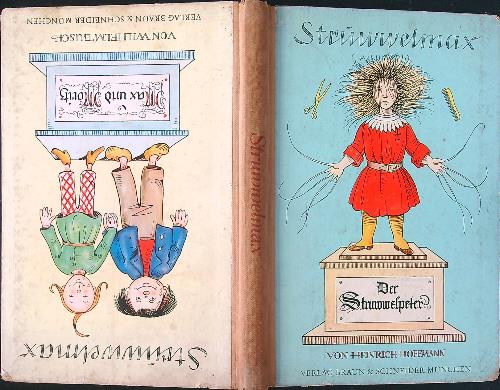 Struwwelmax
Max und Moritz
VON WILHELM BUSCH
VERLAG BRAUN & SCHNEIDER MÜNCHEN
Struwwelmax
Struwwelmax
Der
Struwwelpeter
VON HEINRICH HOFFMANN
VERLAG BRAUN & SCHNEIDER MÜNCHEN